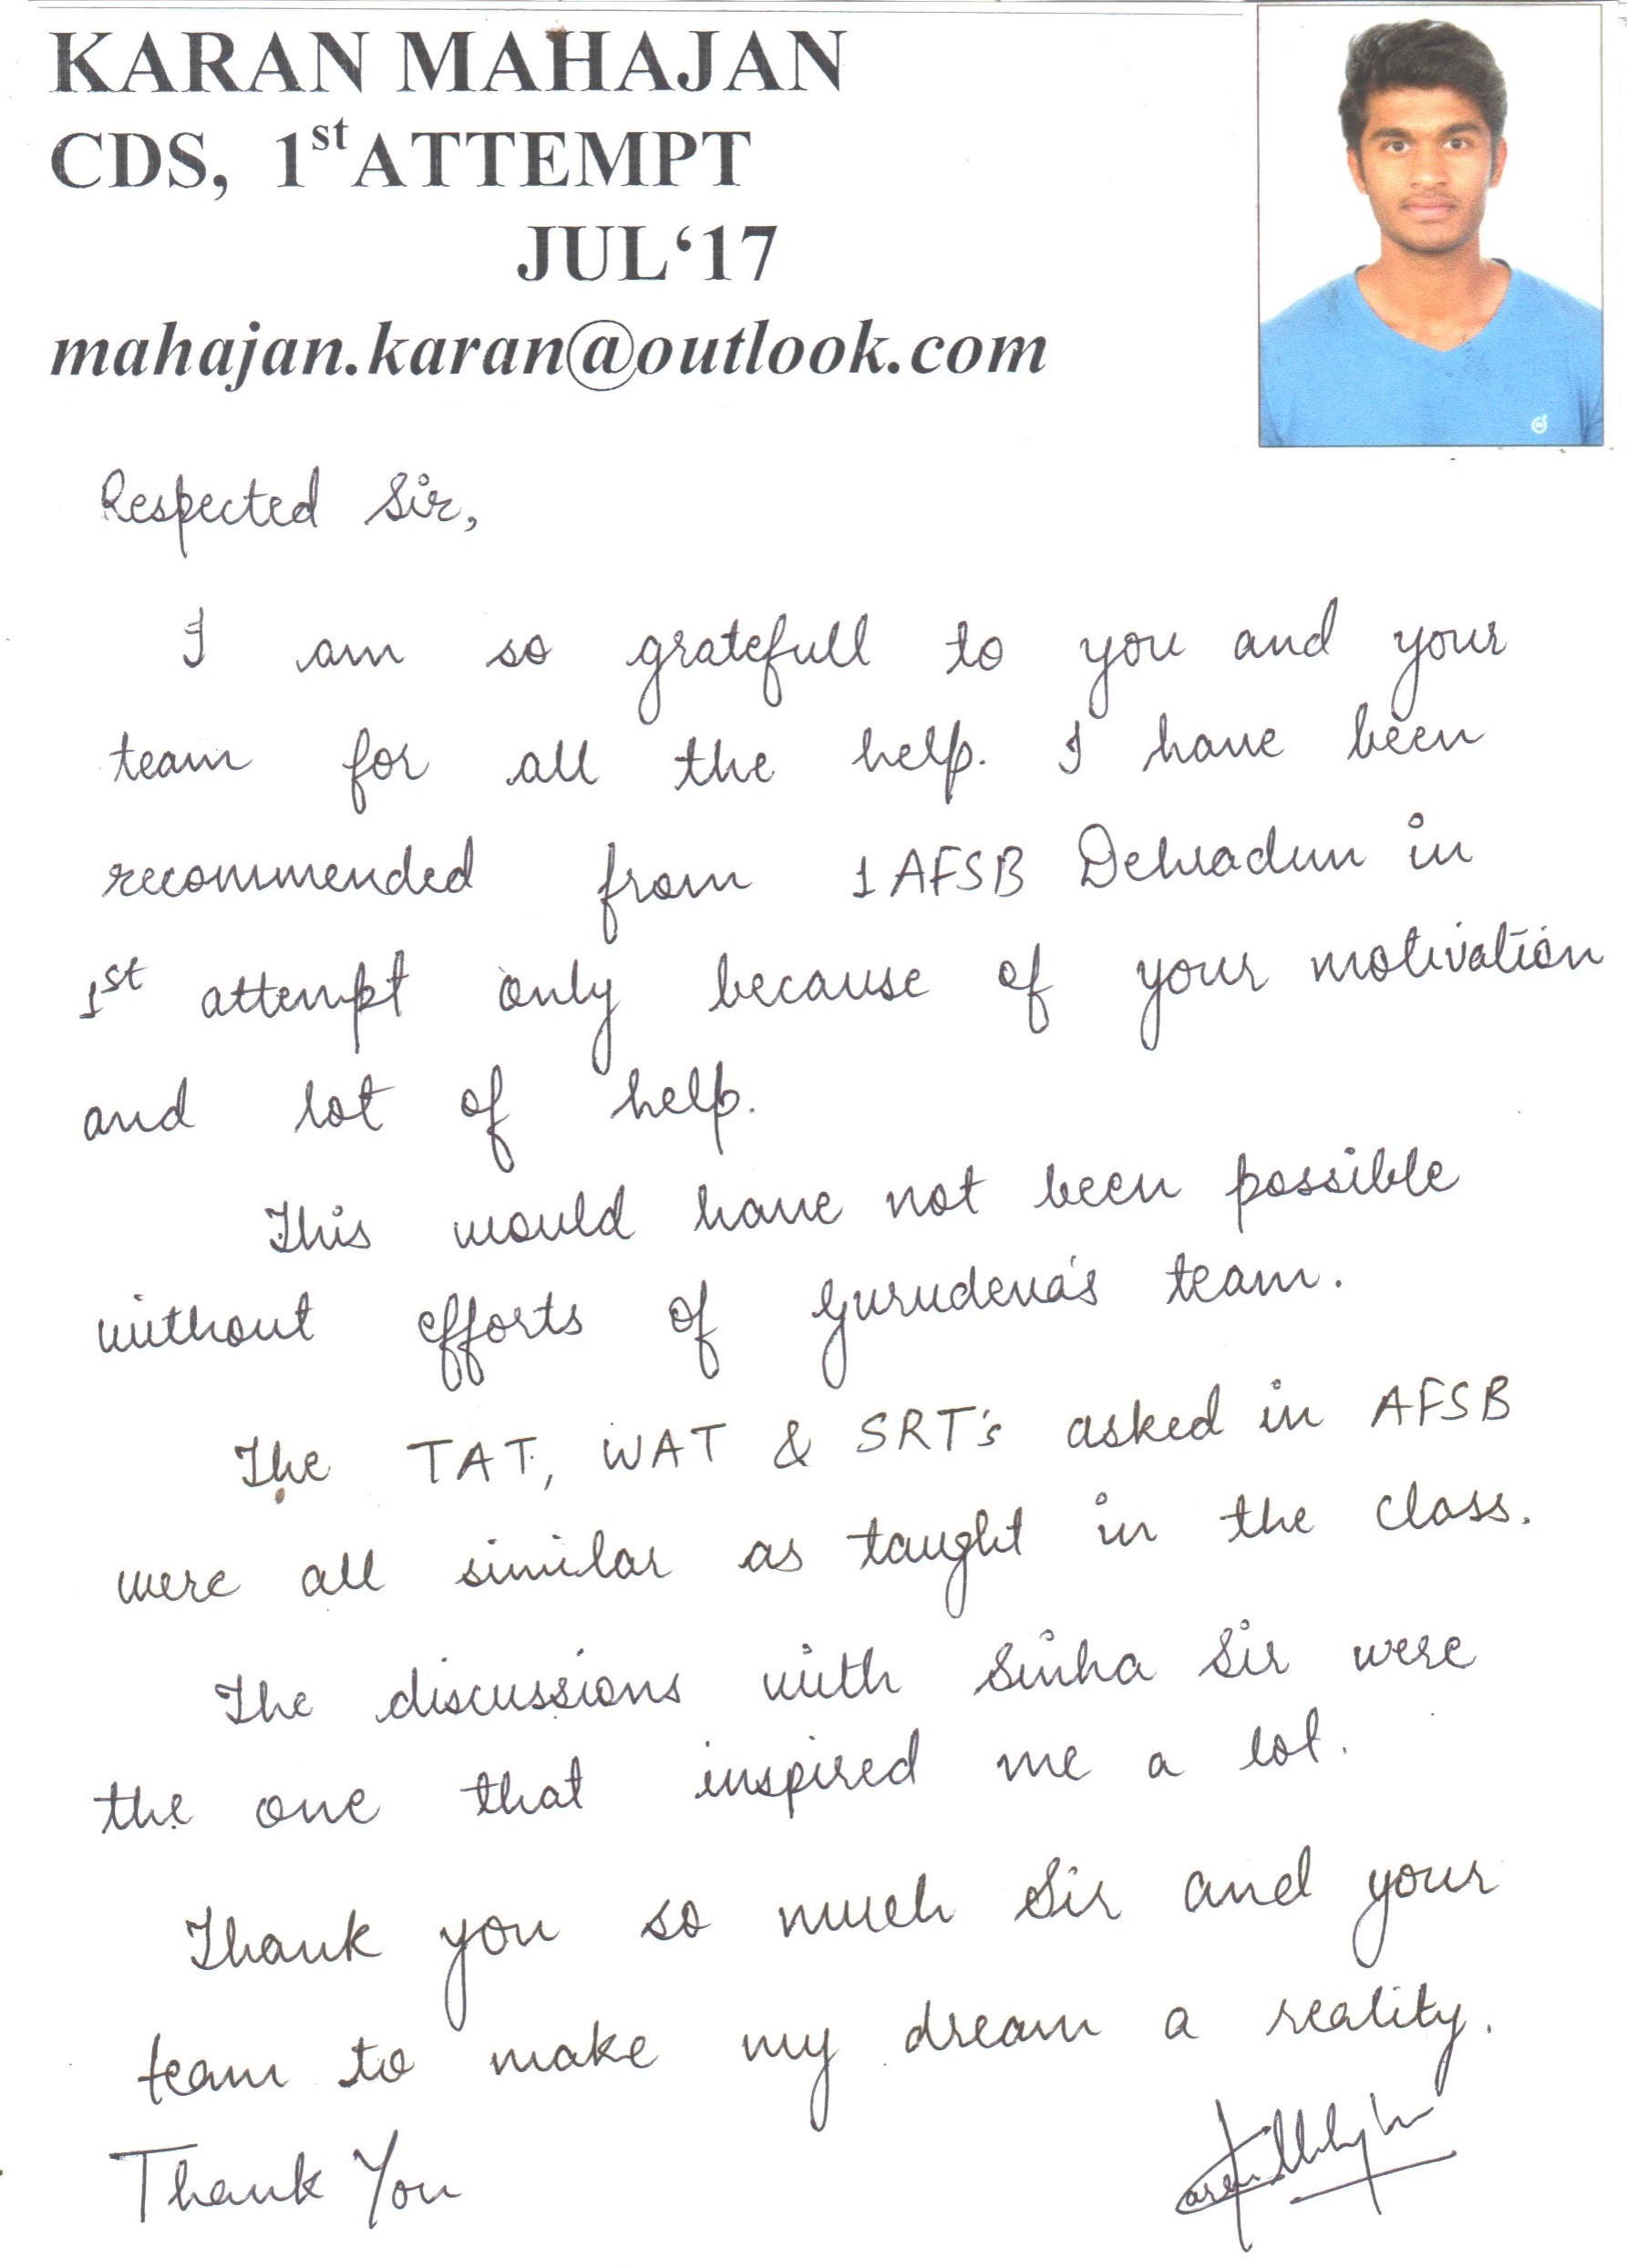 KARAN MAHAJAN
CDS, 1st ATTEMPT
JUL‘17
mahajan.karan@outlook.com
Respected Sir,
I am so gratefull to you and your
team for all the help. I have been
recommended from 1 AFSB Dehradun in
1st attempt only because of your motivation
and lot of help.
This would have not been possible
without efforts of Gurudeva's team.
The TAT, WAT & SRT's asked in AFSB
were all similar as taught in the class.
The discussions with Sinha Sir were
the one that inspired me a lot.
Thank you so much Sir and your
team to make my dream a reality.
Thank You